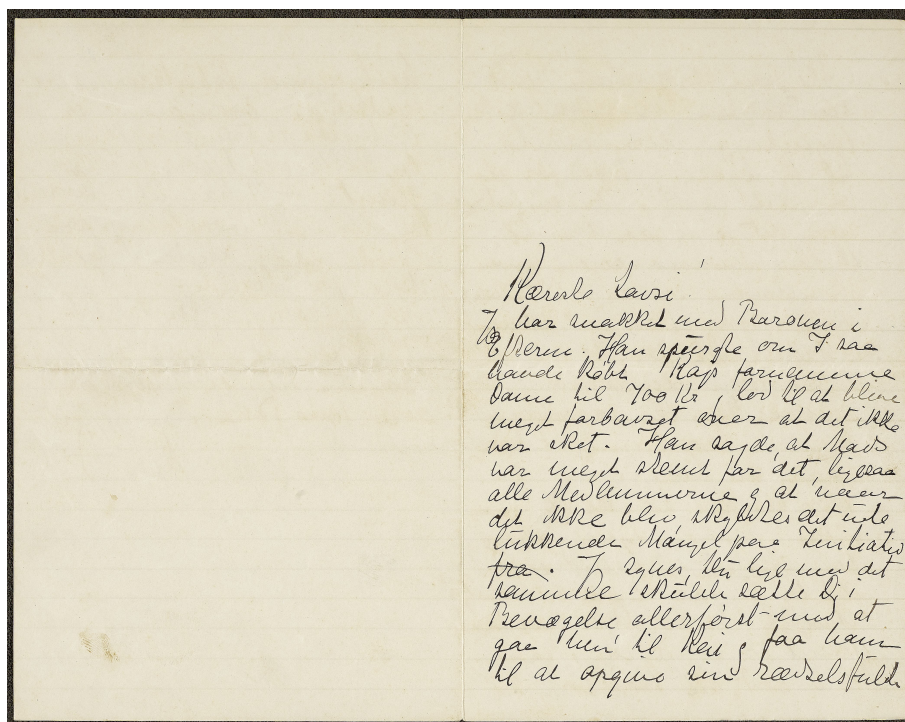 Kæreste Lavsi!
Jeg har snakket med Baronen i
Efterm. Han spurgte om I saa
havde købt Kaps fornemme
Dame til 700 Kr, lod til at blive
meget forbavset over at det ikke
var sket. Han sagde, at Mads
var meget stemt for det, ligesaa
alle Medlemmerne & at naar
det ikke blev, skyldtes det ude
lukkende Mangel paa Initiativ
fra. Jeg synes Du lige med det
samme skulde sætte Dig i
Bevægelse allerførst med at
gaa hen til & faa ham
til at opgive sin rædselsfulde